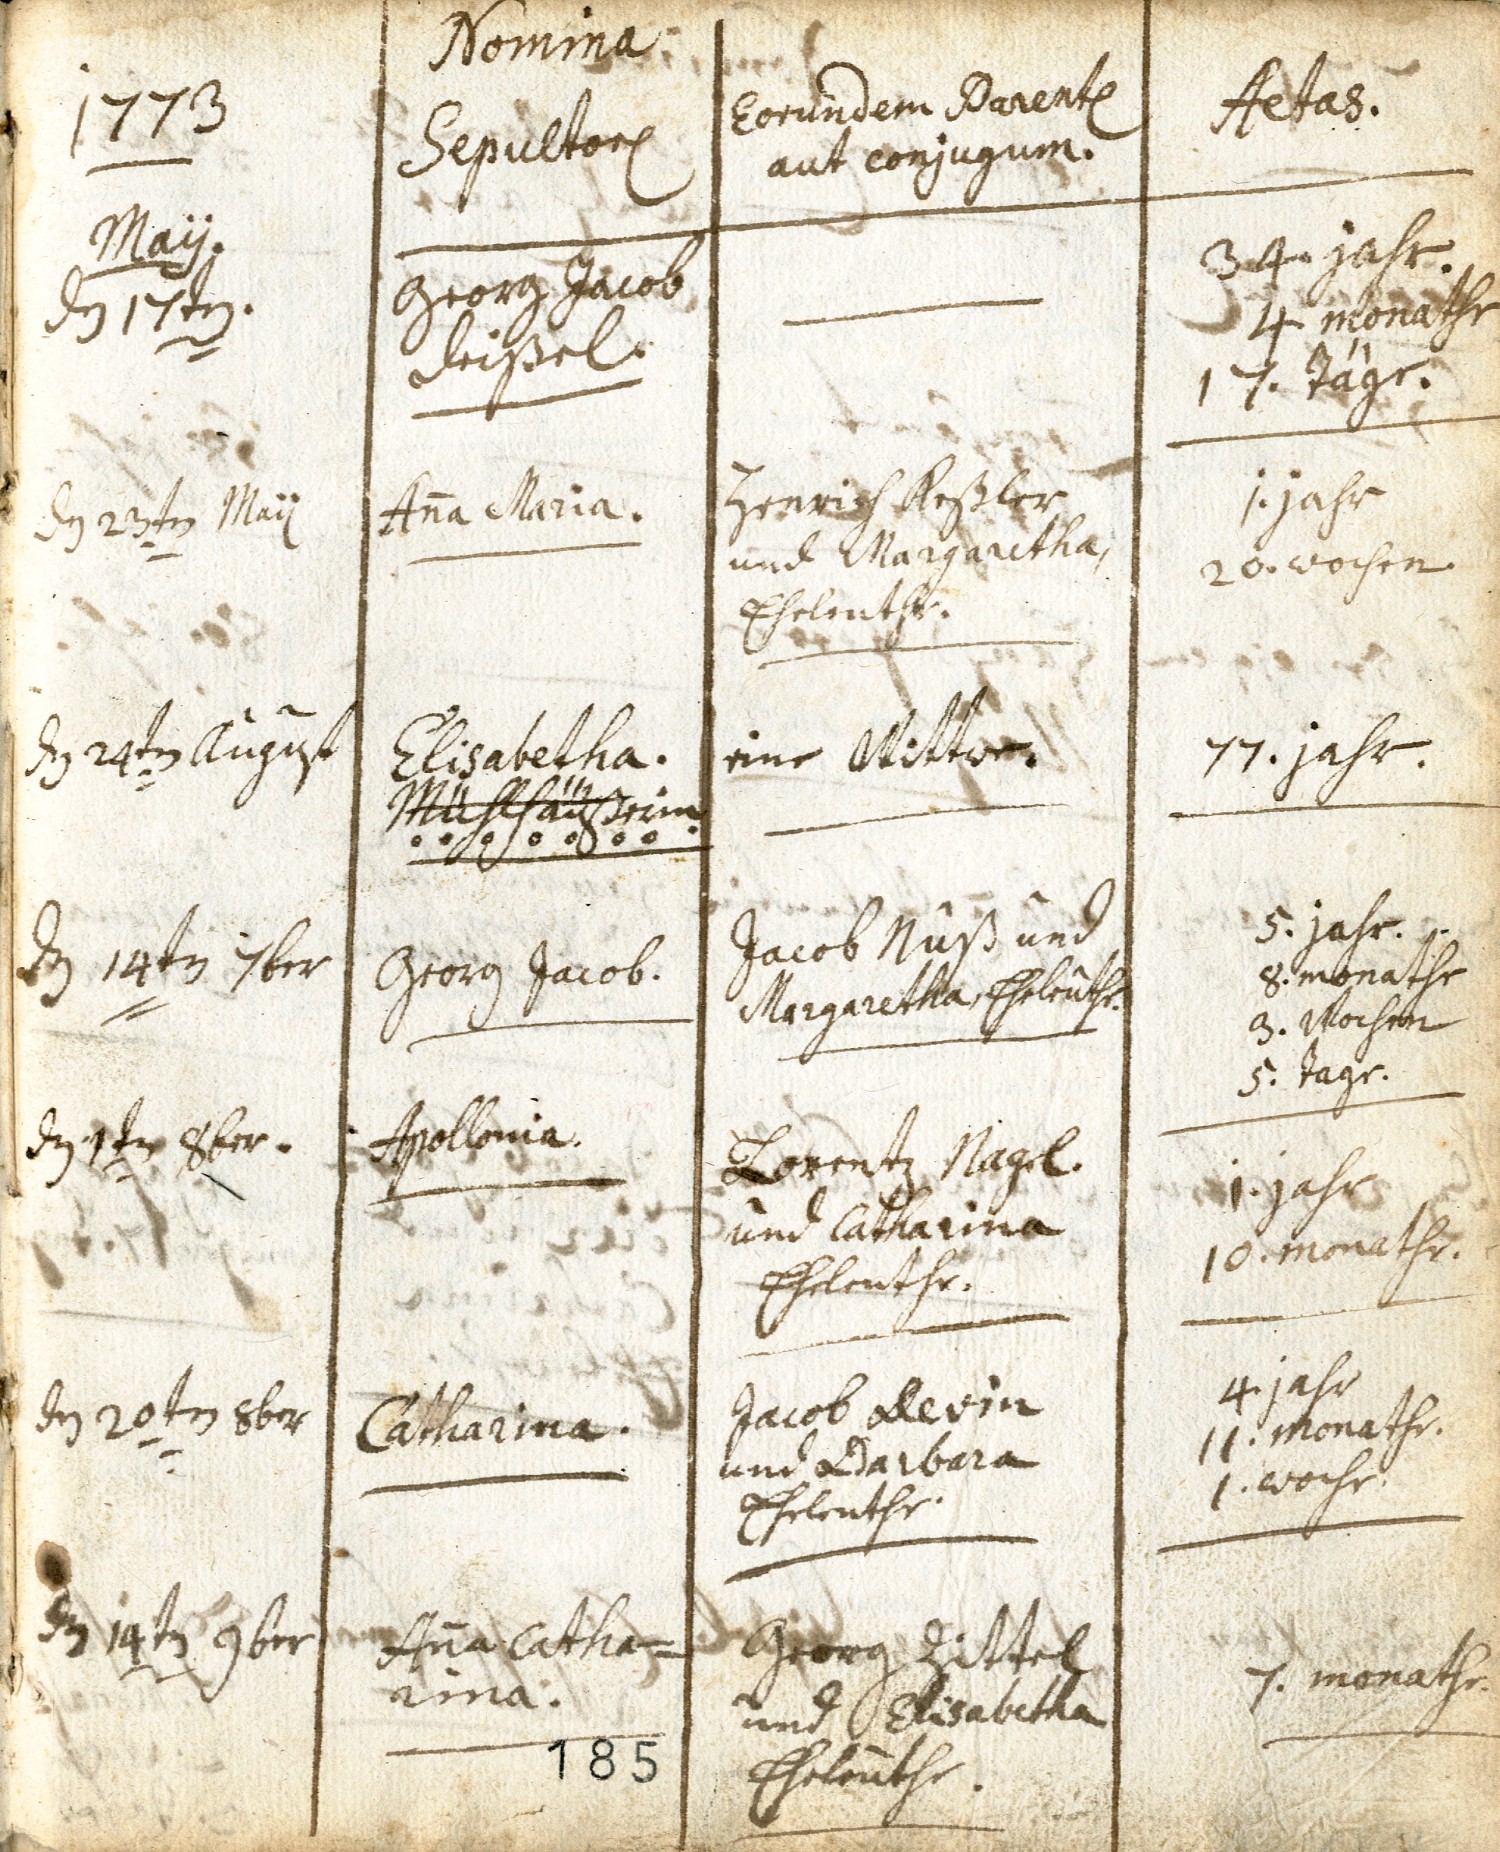 1773
Nomina
Sepultor
Eorundem Parent
aut conjugum.
Aetas.
Maij.
den 17ten.
Georg Jacob
deißel.
34. jahr.
4 monathe
17. täge.
den 23ten Maij
Aña Maria.
Henrich Keßler
und Margaretha,
Eheleuthe.
1. jahr
20. wochen.
den 24ten August
Elisabetha.
Mühlhäußerin
eine Wittwe.
77. jahr.
den 14ten 7ber
Georg Jacob.
Jacob Nuß und
Margaretha, Eheleuthe.
5. jahr.
8. monathe
3. Wochen
5. tage.
den 1ten 8ber.
Apollonia.
Lorentz Nagel.
und Catharina
Eheleuthe.
1. jahr
10. monathe.
den 20ten 8ber
Catharina.
Jacob Devin
und Barbara
Eheleuthe.
4. jahr
11. monathe.
1. woche.
den 14ten 9ber
Aña Catha=
rina.
Georg Zittel
und Elisabetha
Eheleuthe.
7. monathe.
185